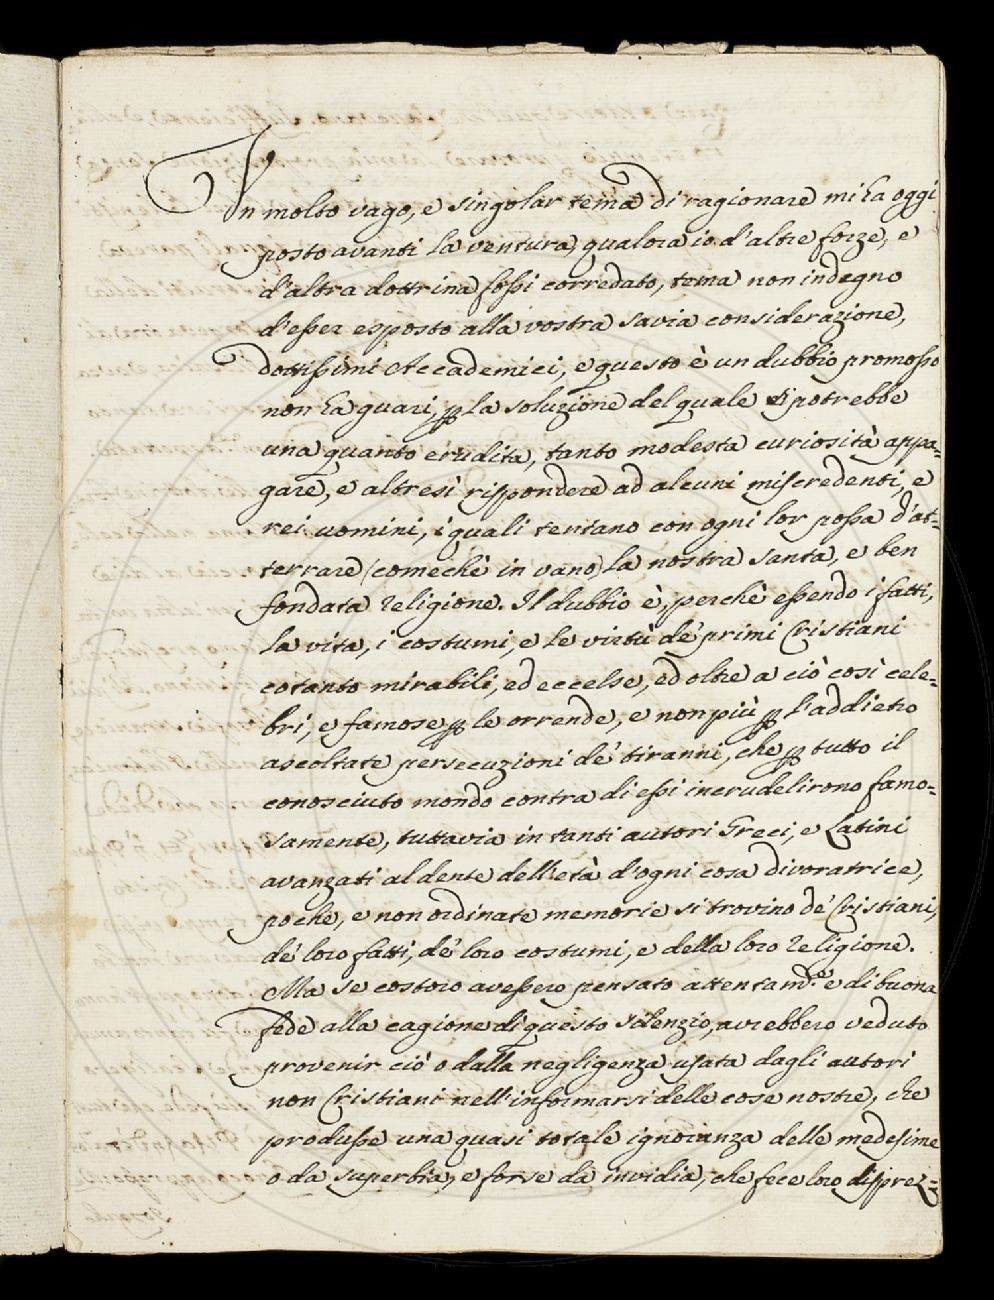 Un molto vago, e singolar tema di ragionare mi ha oggi
posto avanti la ventura, qualora io d'altre forze, e
d'altra dottrina foſsi corredato, tema non indegno
d'eſser esposto alla vostra savia considerazione,
dottiſsimi Accademici, e questo è un dubbio promoſso
non ha guari, ꝑ la soluzione del quale si potrebbe
una quanto erudita, tanto modesta curiosità appa=
gare, e altresì riſpondere ad alcuni miſcredenti, e
rei uomini, i quali tentano con ogni lor poſsa d'at=
terrare (comechè in vano) la nostra santa, e ben
fondata religione. Il dubbio è, perchè eſsendo i fatti,
la vita, i costumi, e le virtù de' primi Cristiani
cotanto mirabili, ed eccelse, ed oltre a ciò così cele=
bri, e famose ꝑ le orrende, e non più ꝑ l'addietro
ascoltate persecuzioni de' tiranni, che ꝑ tutto il
conosciuto mondo contra di eſsi incrudelirono famo=
samente, tuttavia in tanti autori Greci, e Latini
avanzati al dente dell'età d'ogni cosa divoratrice,
poche, e non ordinate memorie si trovino de' Cristiani,
de' loro fatti, de' loro costumi, e della loro religione.
Ma se costoro aveſsero pensato attentam.te e di buona
fede alla cagione di questo silenzio, avrebbero veduto
provenir ciò o dalla negligenza uſata dagli autori
non Cristiani nell'informarsi delle cose nostre, che
produſse una quasi totale ignoranza delle medeſime
o da superbia, e forse da invidia, che fece loro diſprez=